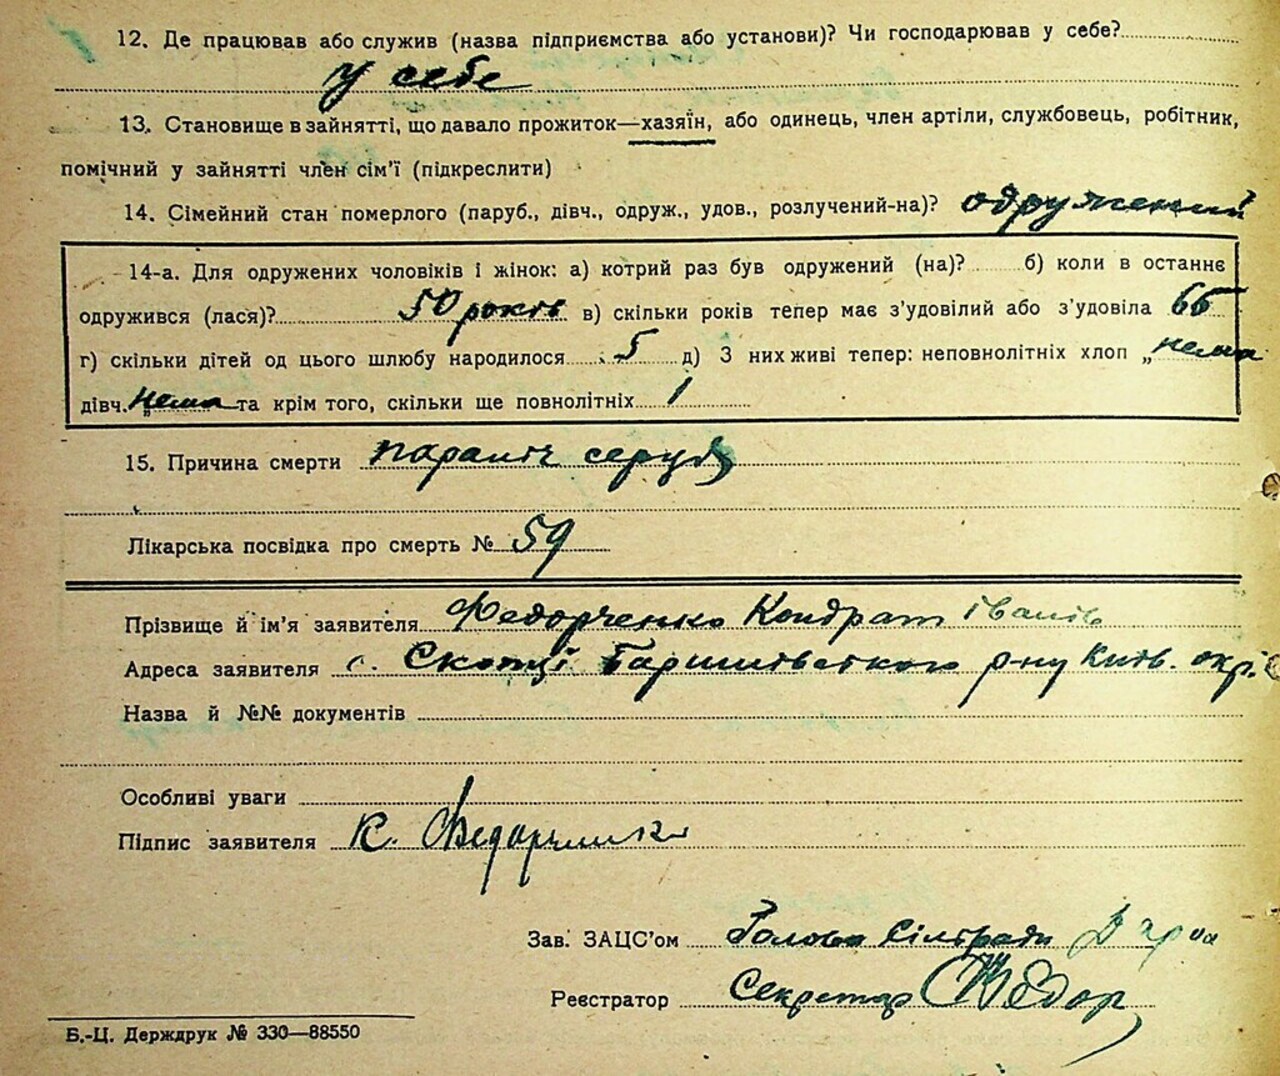 12. Де працював або служив (назва підприємства або установи)? Чи господарював у себе?
у себе
13. Становище в зайнятті, що давало прожиток—хазяїн, або одинець, член артіли, службовець, робітник,
помічний у зайнятті член сім’ї (підкреслити)
14. Сімейний стан померлого (паруб., дівч., одруж., удов., розлучений-на)? одружений
14-а. Для одружених чоловіків і жінок: а) котрий раз був одружений (на)? б) коли в останнє
одружився (лася)? 50 років в) скільки років тепер має з’удовілий або з’удовіла 66
г) скільки дітей од цього шлюбу народилося 5 д) З них живі тепер: неповнолітніх хлоп „ нема
дівч. „ нема та крім того, скільки ще повнолітніх 1
15. Причина смерти параліч серця
Лікарська посвідка про смерть № 59
Прізвище й ім’я заявителя Федорченко Кондрат Іванів
Адреса заявителя с. Скопці Баришівського р-ну Київ. окр.
Назва й №№ документів
Особливі уваги
Підпис заявителя К. Федорченко
Зав. ЗАЦС’ом Голова сільради
Реєстратор Секретар
Б.-Ц. Держдрук № 330—88550